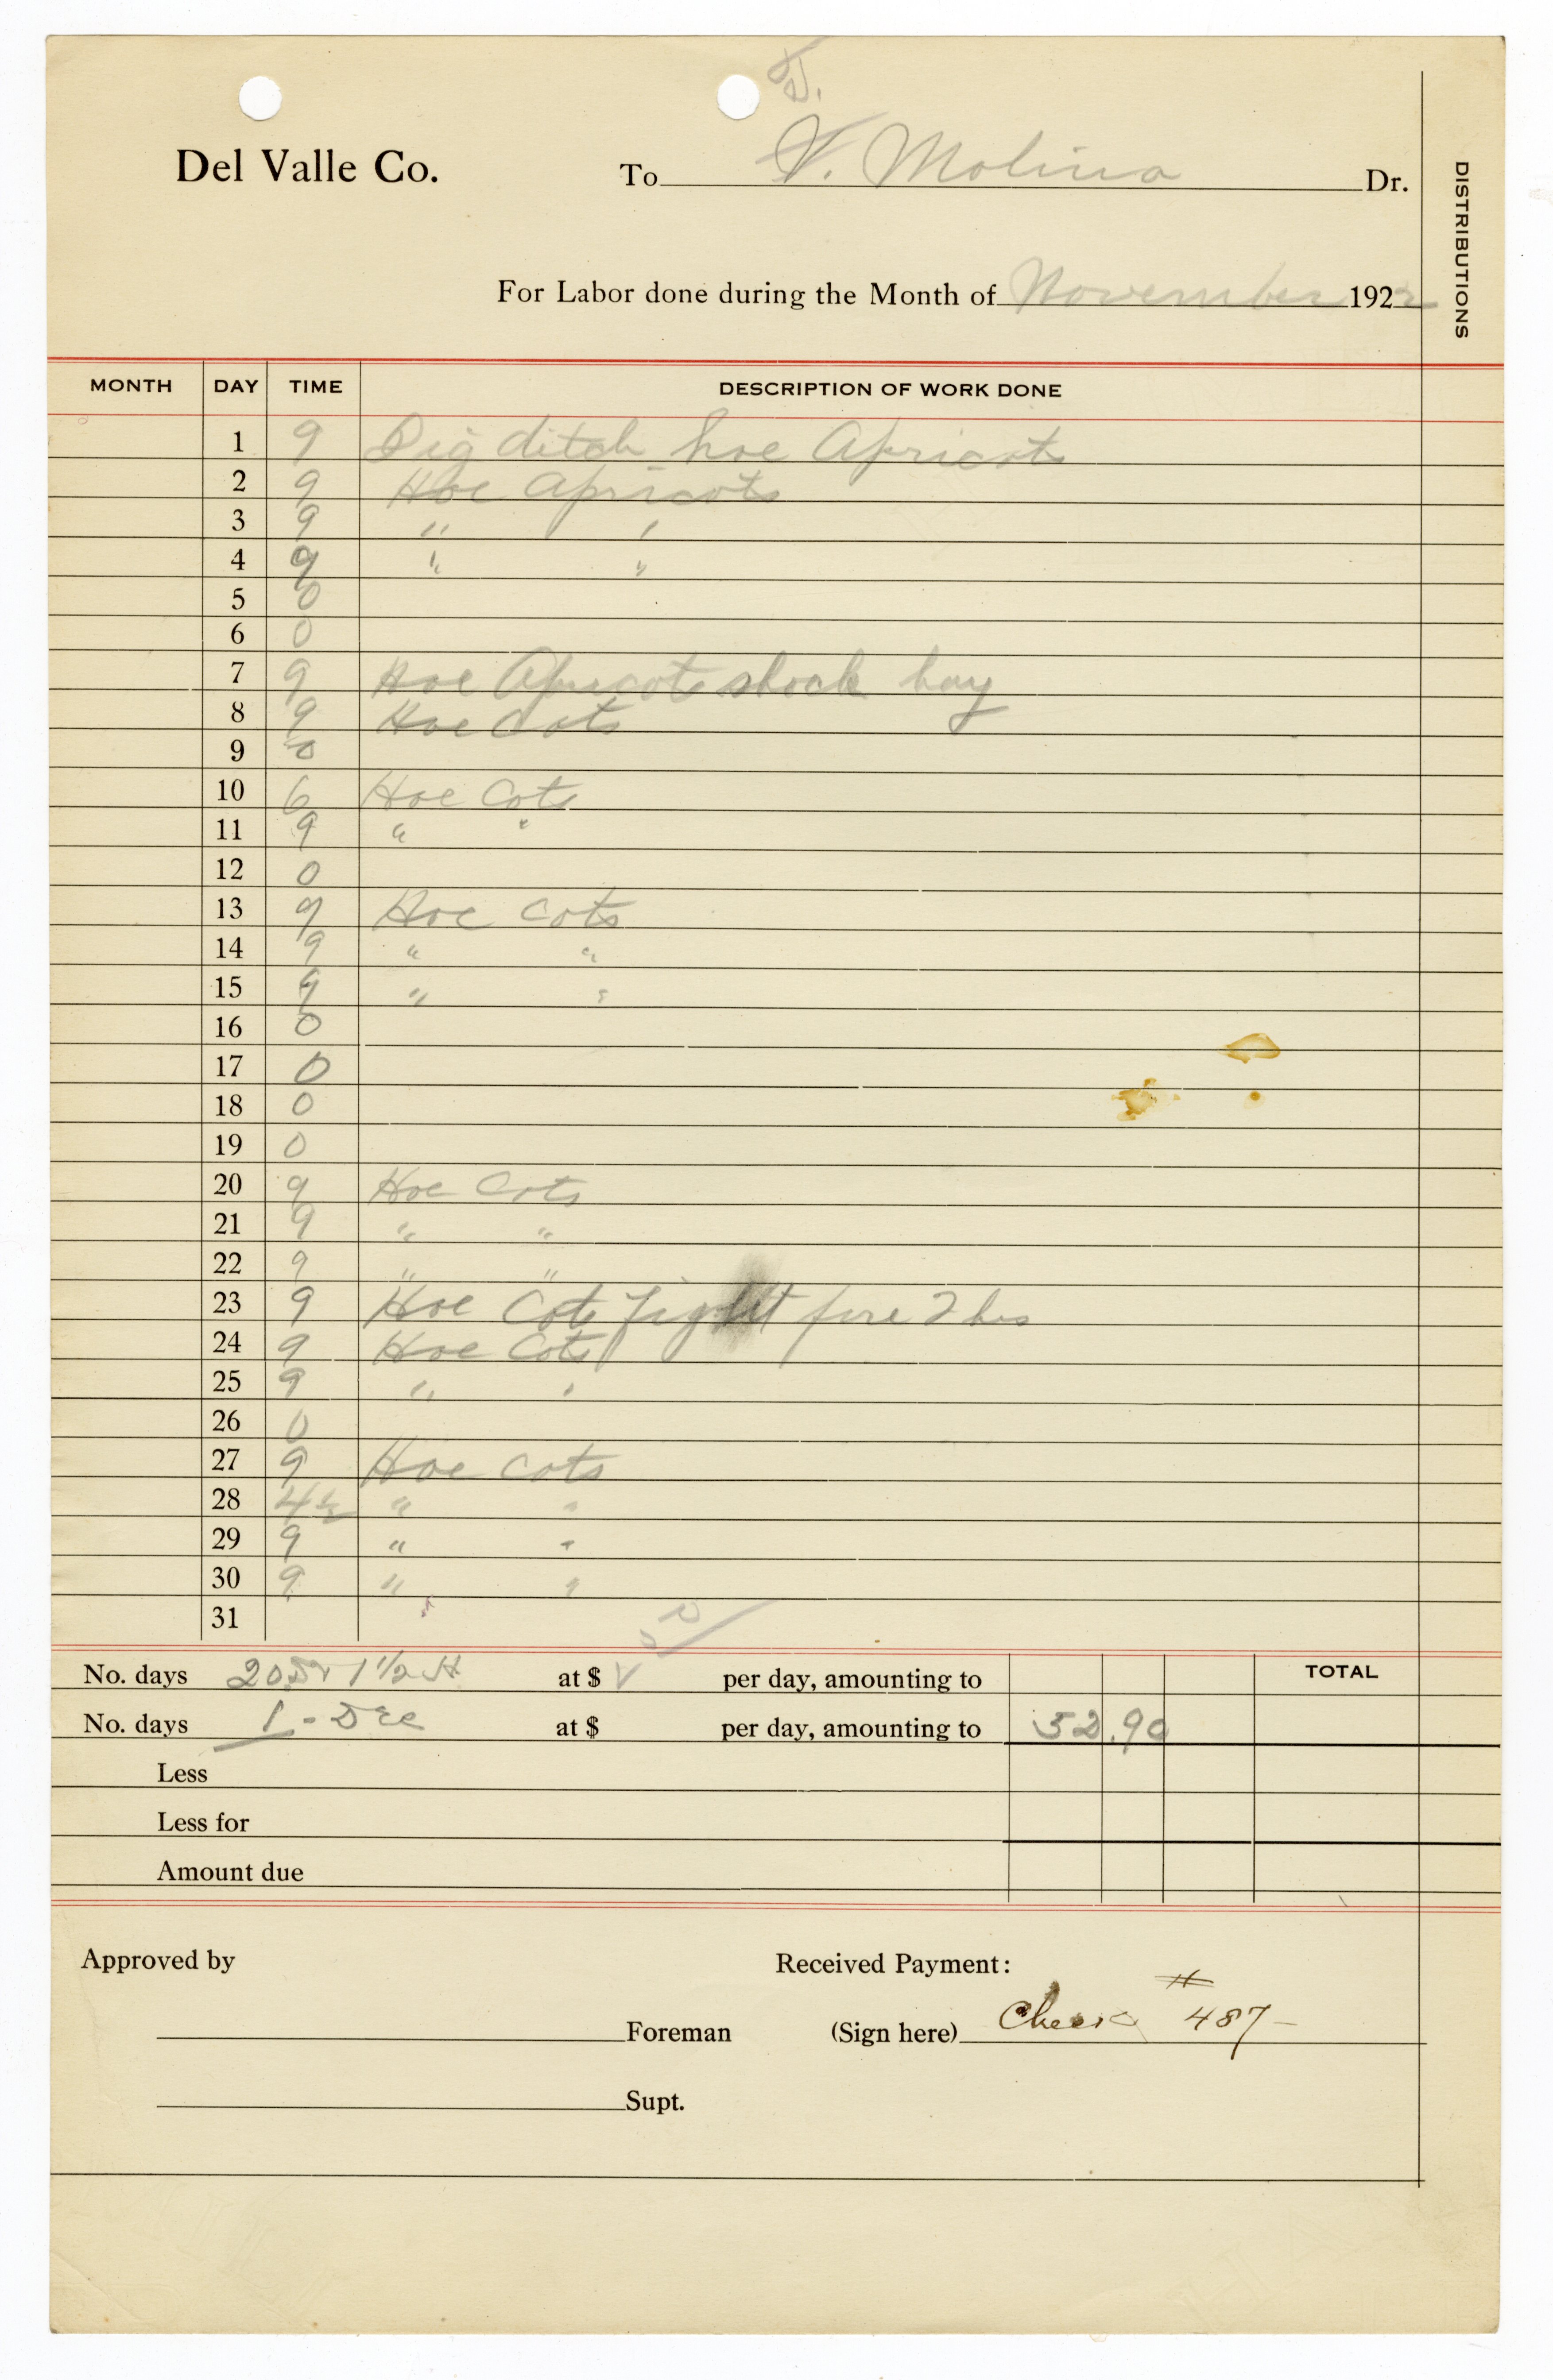 D.
Del Valle Co. To V. Molina Dr.
DISTRIBUTIONS
For Labor done during the Month of November 1922
MONTH DAY TIME DESCRIPTION OF WORK DONE
1 9 Dig ditch hoe Apricots
2 9 Hoe Apricots
3 9 " "
4 9 " "
5 0
6 0
7 9 Hoe Apricots shock hay
8 9 Hoe Cots
9 0
10 6 Hoe Cots
11 9 " "
12 0
13 9 Hoe Cots
14 9 " "
15 9 " "
16 0
17 0
18 0
19 0
20 9 Hoe Cots
21 9 " "
22 9 " "
23 9 Hoe Cots Fight fire 2 hrs
24 9 Hoe Cots
25 9 " "
26 0
27 9 Hoe Cots
28 4½ " "
29 9 " "
30 9 " "
31
No. days 20 1½ H at $ per day, amounting to TOTAL
No. days 1 - Dec at $ per day, amounting to 52.90
Less
Less for
Amount due
Approved by Received Payment:
Foreman (Sign here) Check # 487-
Supt.